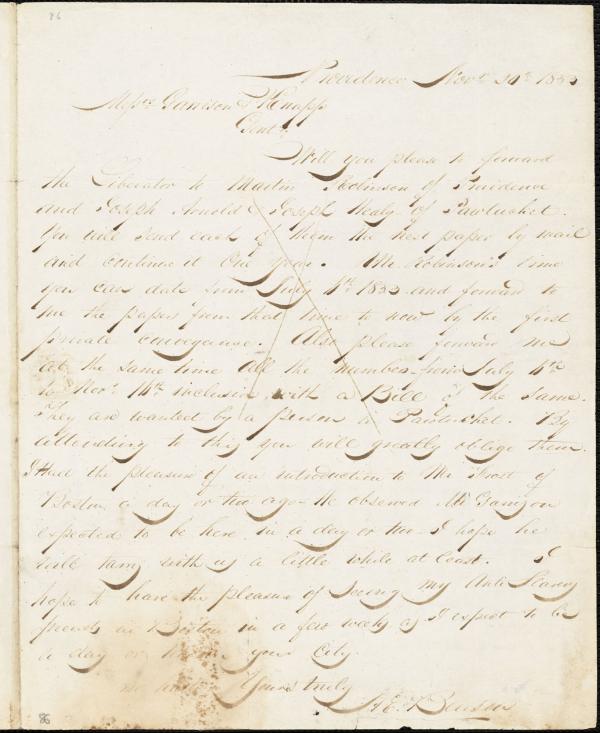 86
Providence Novr 20th 1833
Messrs Garrison & Knapp
Gentn
Will you please to forward
the Liberator to Martin Robinson of Providence
and Joseph Arnold & Joseph Healy of Pawtucket.
You will send each of them the next paper by mail
and continue it One year. Mr. Robinson's time
you can date from July 4th 1833 and forward to
me the papers from that time to now by the first
private conveyance. Also please forward me
at the same time all the numbers from July 4th
to Novr 16th inclusive with a Bill of the same.
They are wanted by a person in Pawtucket. By
attending to this you will greatly oblige them.
I had the pleasure of an introduction to Mr Frost of
Boston a day or two ago - He observed Mr Garrison
expected to be here in a day or two - I hope he
will tarry with us a little while at least. I
hope to have the pleasure of seeing my Anti Slavery
friends in Boston in a few weeks as I expect to be
a day or two in your city.
Yours truly
H E Benson
86